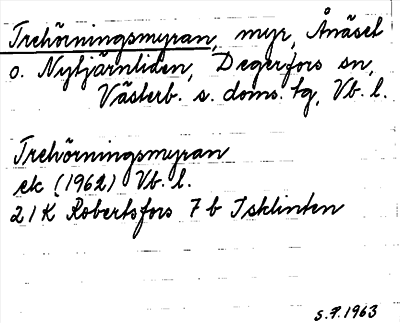 Trehörningsmyran, myr, Ånäset
o. Nytjärnliden, Degerfors sn,
Västerb. s. doms. tg, Vb. l.
Trehörningsmyran
ek (1962) Vb. l.
21K Robertsfors 7 b Isklinten
S.P. 1963